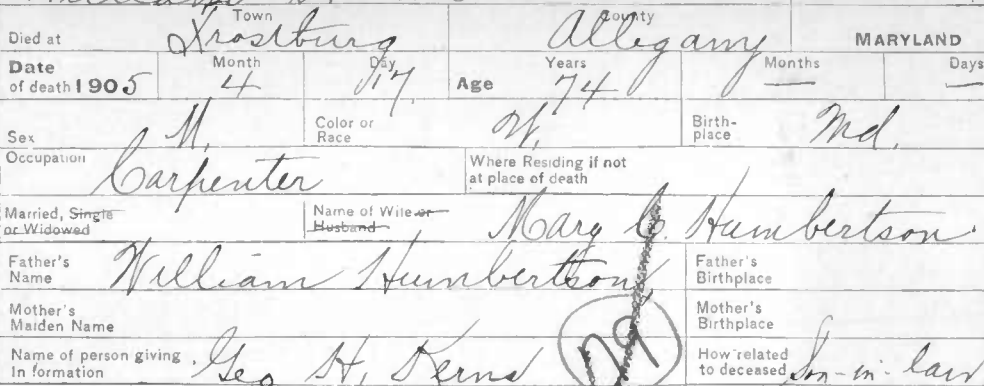 Town County
Died at Frostburg Allegany MARYLAND
Month Day Years Months Days
Date of death 1905 4 17 Age 74 — —
Sex M. Color or Race W. Birth-place Md.
Occupation Carpenter Where Residing if not at place of death
Married, Single or Widowed Name of Wife or Husband Mary C. Humbertson
Father's Name William Humbertson Father's Birthplace
Mother's Maiden Name Mother's Birthplace
Name of person giving In formation Geo H. Kerns How related to deceased Son-in-law
79